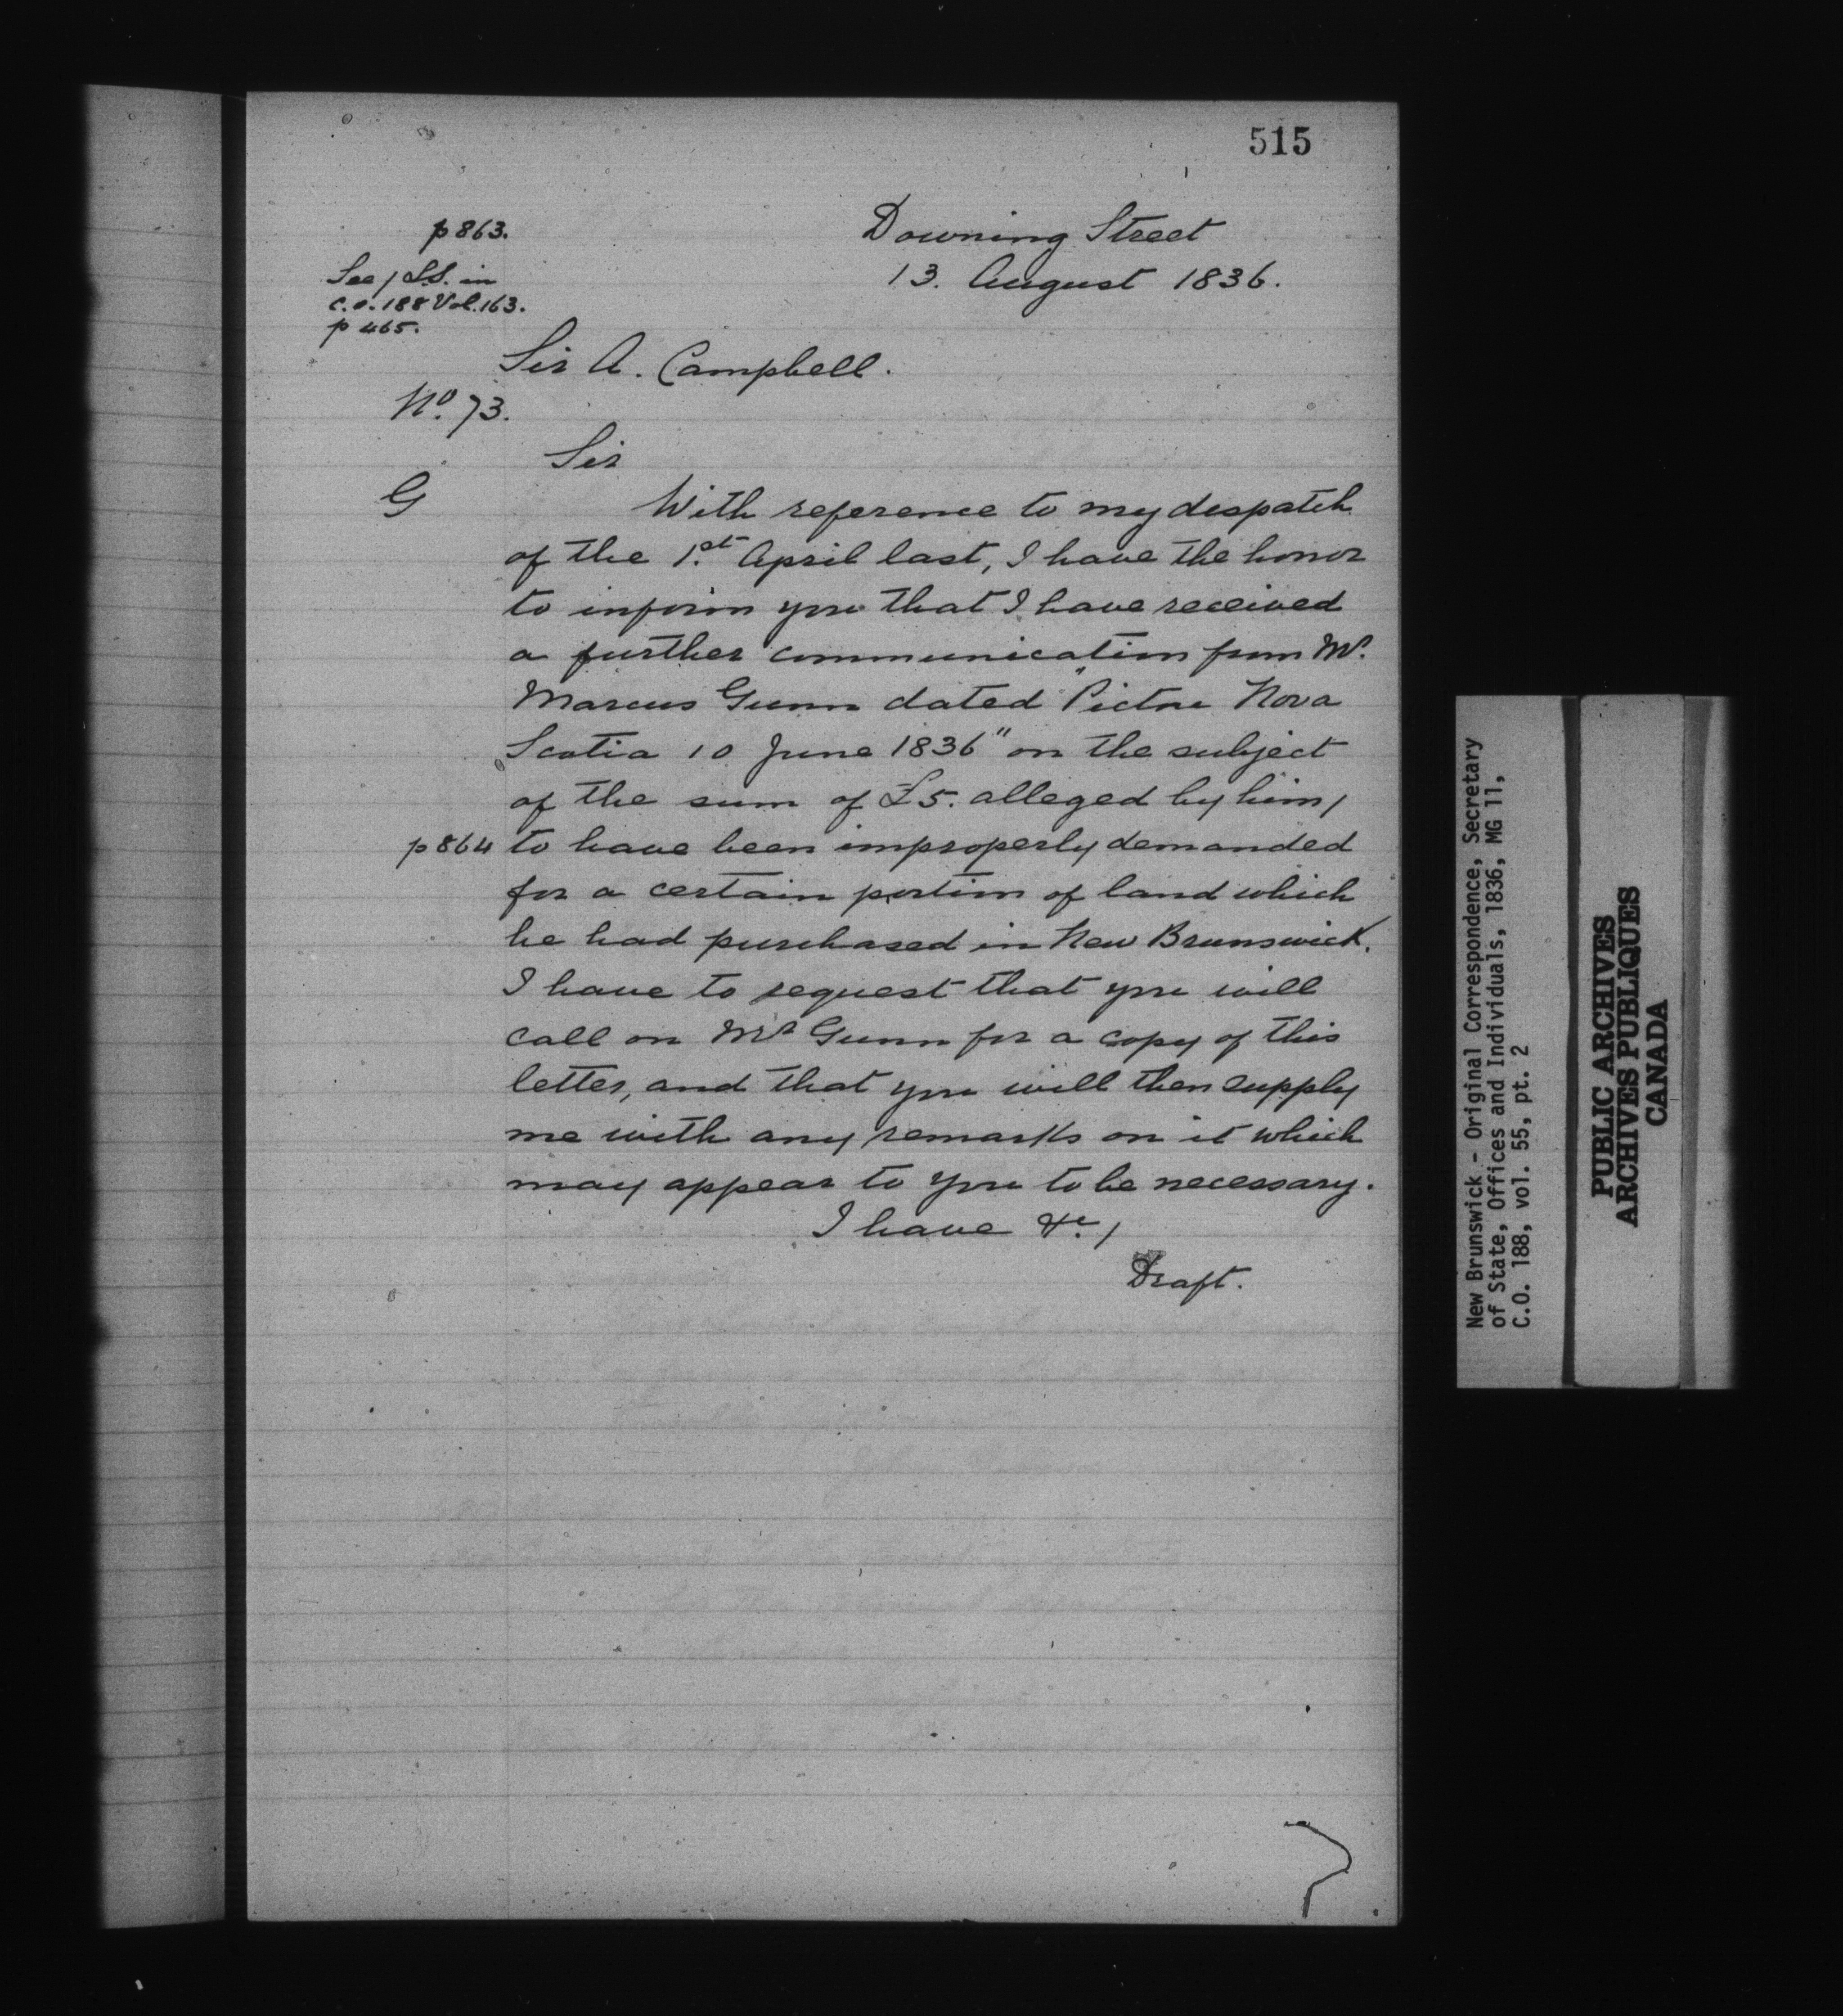 515
p 863.
Downing Street
See / S.S. in
13. August 1836.
C.O. 188 Vol. 163.
p 465.
Sir A. Campbell.
No. 73.
Sir
G
With reference to my despatch
of the 1.st April last, I have the honor
to inform you that I have received
a further communication from Mr.
Marcus Gunn dated "Pictou Nova
Scotia 10 June 1836" on the subject
of the sum of £5. alleged by him /
p 864 to have been improperly demanded
for a certain portion of land which
he had purchased in New Brunswick.
I have to request that you will
call on Mr Gunn for a copy of this
letter, and that you will then supply
me with any remarks on it which
may appear to you to be necessary.
I have &c. /
Draft.
New Brunswick - Original Correspondence, Secretary
of State, Offices and Individuals, 1836, MG 11,
C.O. 188, vol. 55, pt. 2
PUBLIC ARCHIVES
ARCHIVES PUBLIQUES
CANADA